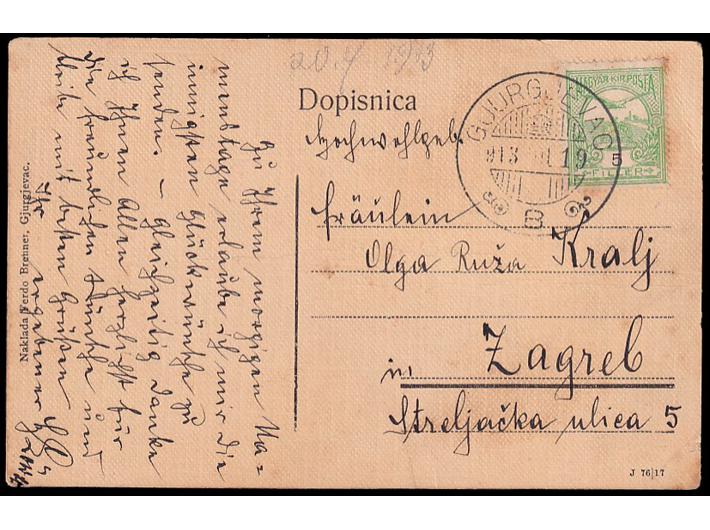 20.7 1913
Dopisnica
MAGYAR KIR. POSTA
5
FILLER
GJURGJEVAC
913 19
B
Hochwohlgeb.
Fräulein
Olga Ruža Kralj
in Zagreb
Streljačka ulica 5
Zu Ihrem morgigen Na=
menstage erlaube ich mir die
innigsten Glückwünsche zu
senden. – Gleichzeitig danke
ich Ihnen Allen herzlichst für
die freundlichen Wünsche und
bleibe mit besten Grüßen
Ihr
ergebener
Naklada Ferdo Brenner, Gjurgjevac.
J 76|17